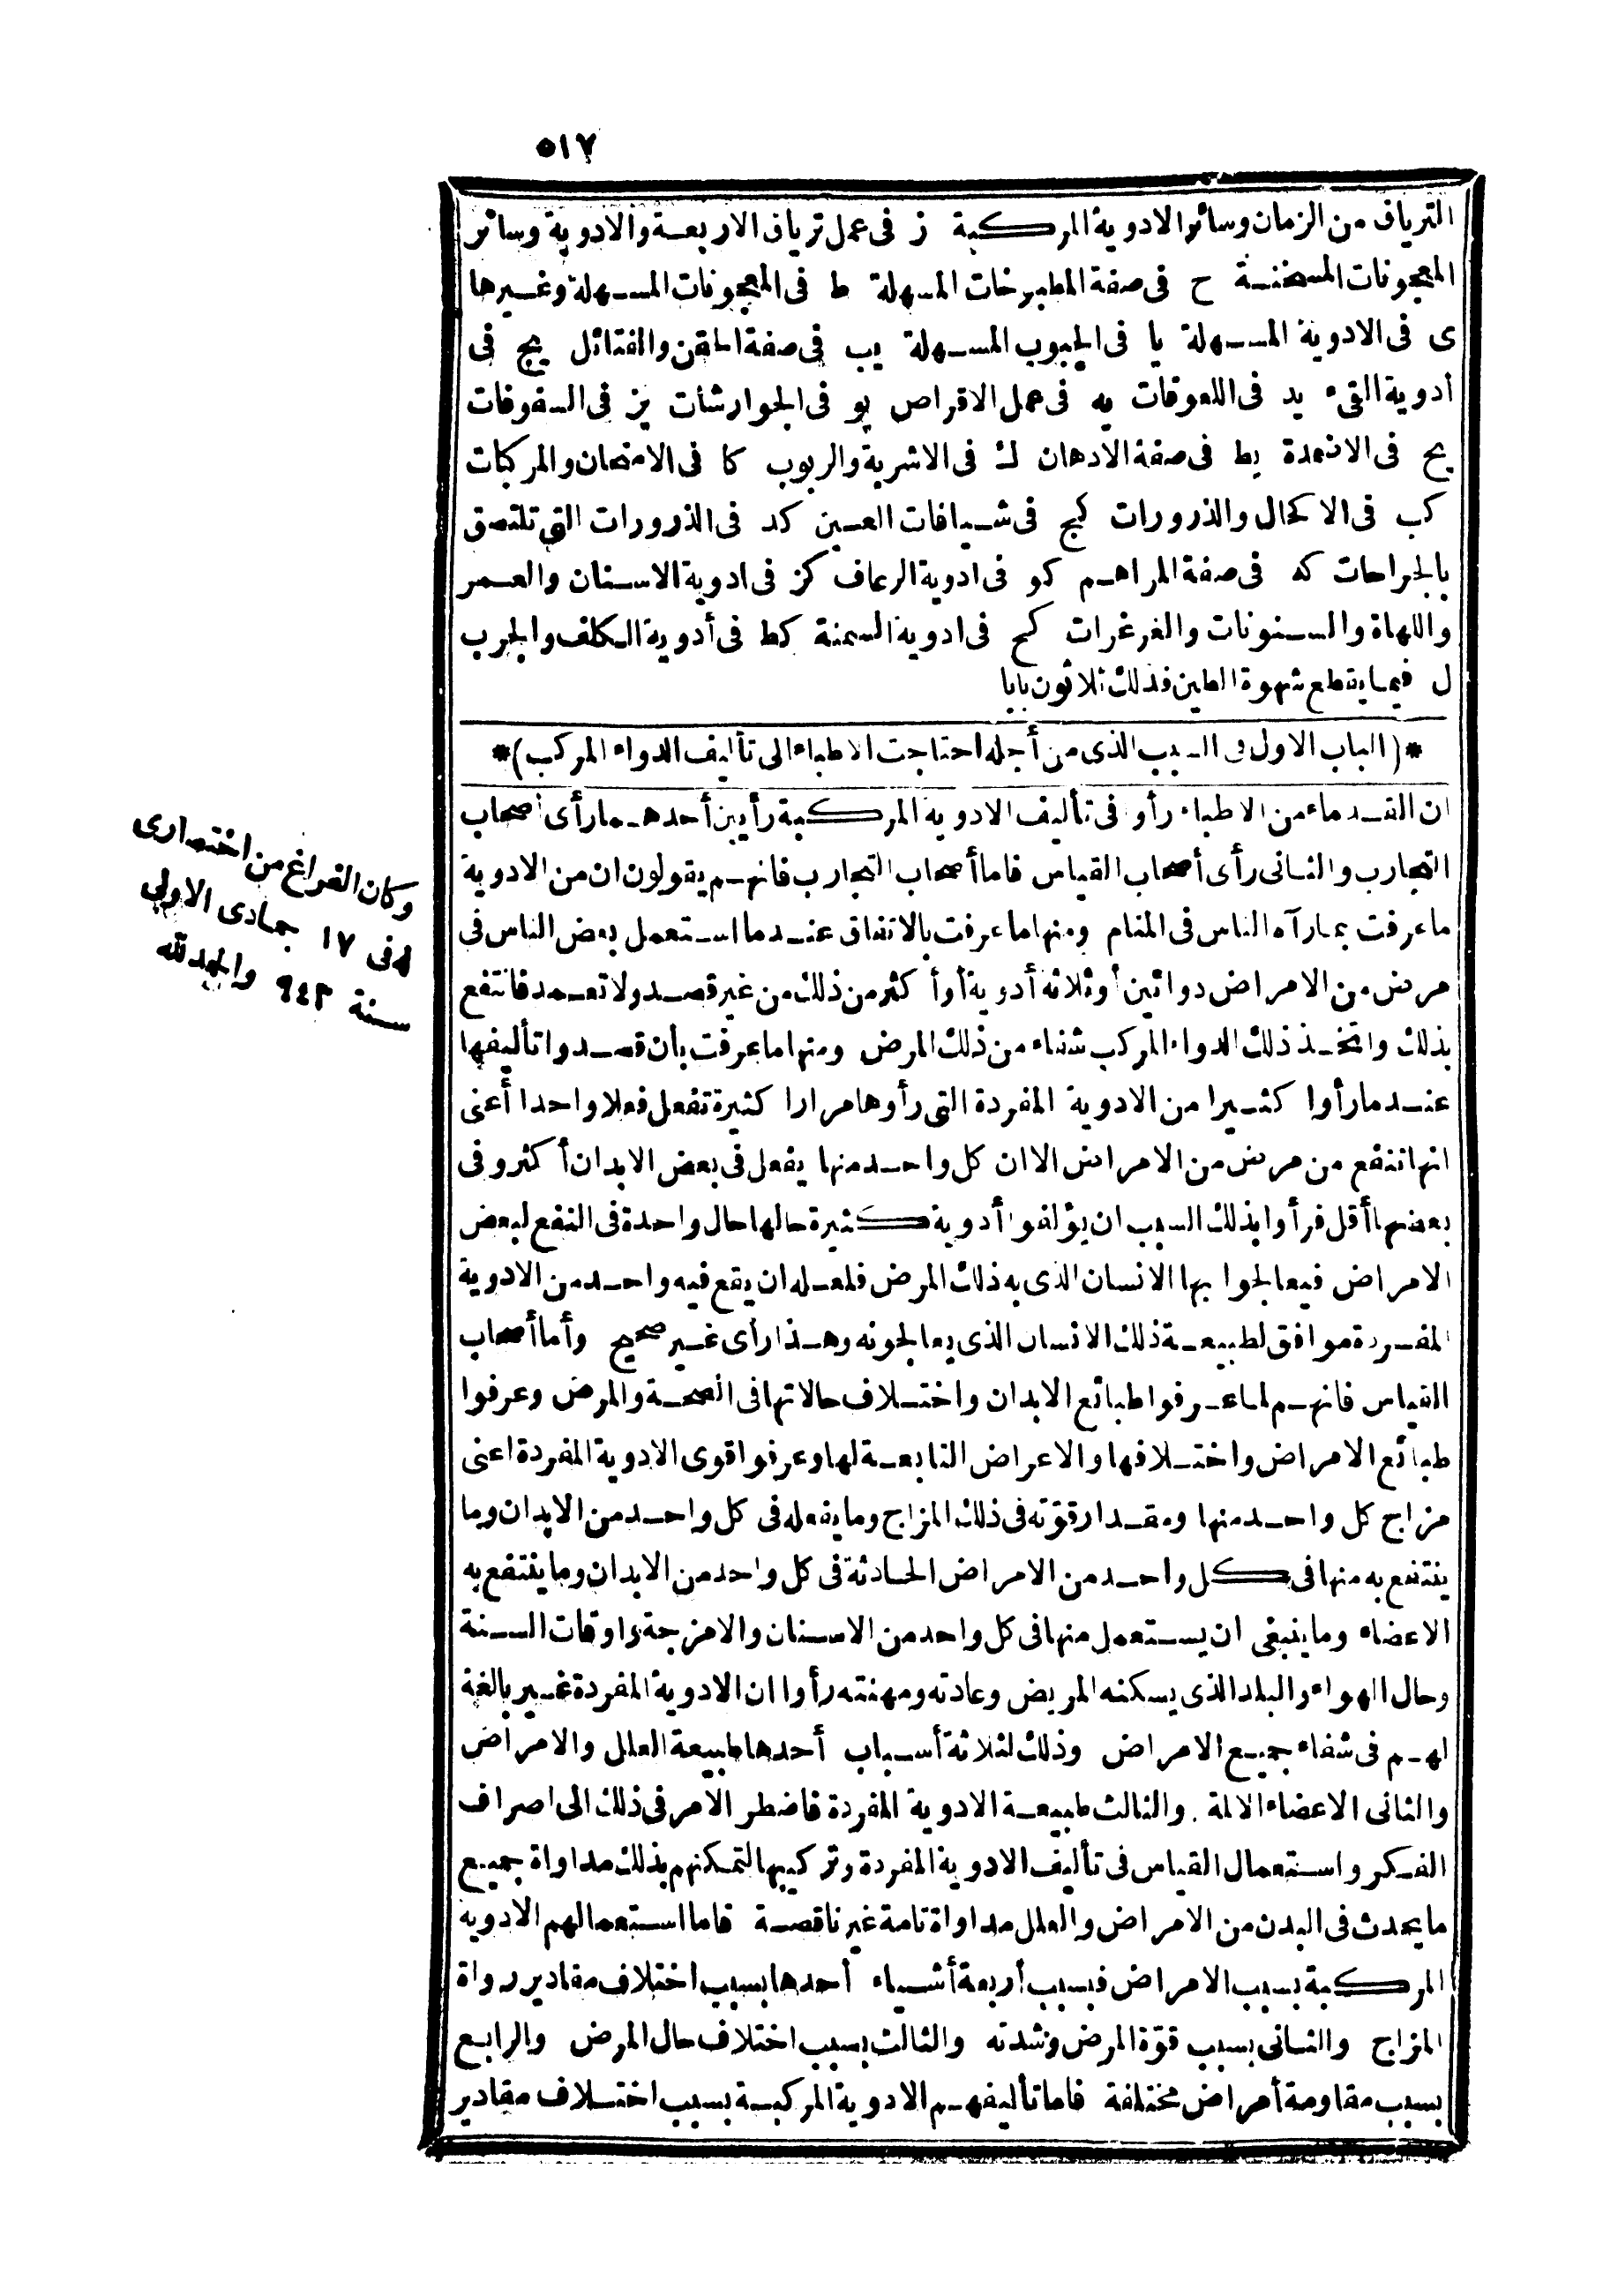 ٥١٧
الترياق من الزمان وسائر الادوية المركبة ز فى عمل ترياق الاربعة والادوية وسائر
المعجونات المسخنة ح فى صفة المطبوخات المسهلة ط فى المعجونات المسهلة وغيرها
ى فى الادوية المسهلة يا فى الحبوب المسهلة يب فى صفة الحقن والفتائل يج فى
أدوية القىء يد فى اللعوقات يه فى عمل الاقراص يو فى الجوارشات يز فى السفوفات
يح فى الاضمدة يط فى صفة الادهان ك فى الاشربة والربوب كا فى والمركبات
كب فى الاكحال والذرورات كج فى شيافات العين كد فى الذرورات التى تلتصق
بالجراحات كه فى صفة المراهم كو فى ادوية الرعاف كز فى ادوية الاسنان والعمر
واللهاة والسنونات والغرغرات كح فى ادوية السمنة كط فى أدوية الكلف والجرب
ل فيما يقطع شهوة الطين فذلك ثلاثون بابا
*(الباب الاول فى السبب الذى من أجله احتاجت الاطباء الى تأليف الدواء المركب)*
ان القدماء من الاطباء رأو فى تأليف الادوية المركبة رأيين أحدهما رأى أصحاب
التجارب والثانى رأى أصحاب القياس فاما أصحاب التجارب فانهم يقولون ان من الادوية
ما عرفت بما رآه الناس فى المنام ومنها ما عرفت بالاتفاق عندما استعمل بعض الناس فى
مرض من الامراض دوائين أو ثلاثة أدوية أو أكثر من ذلك من غير قصد ولا تعمد فانتفع
بذلك واتخذ ذلك الدواء المركب شفاء من ذلك المرض ومنها ما عرفت بأن قصدوا تأليفها
عند ما رأوا كثيرا من الادوية المفردة التى رأوها مرارا كثيرة تفعل فعلا واحدا أعنى
انها تنفع من مرض من الامراض الا ان كل واحد منها يفعل فى بعض الابدان أكثر وفى
بعضها أقل فرأوا بذلك السبب ان يؤلفوا أدوية كثيرة حالها حال واحدة فى النفع لبعض
الامراض فيعالجوا بها الانسان الذى به ذلك المرض فلعله ان يقع فيه واحد من الادوية
المفردة موافق لطبيعة ذلك الانسان الذى يعالجونه وهذا رأى غير صحيح وأما أصحاب
القياس فانهم لما عرفوا طبائع الابدان واختلاف حالاتها فى الصحة والمرض وعرفوا
طبائع الامراض واختلافها والاعراض التابعة لها وعرفوا قوى الادوية المفردة اعنى
مزاج كل واحد منها ومقدار قوّته فى ذلك المزاج وما يفعله فى كل واحد من الابدان وما
ينتفع به منها فى كل واحد من الامراض الحادثة فى كل واحد من الابدان وما ينتفع به
الاعضاء وما ينبغى ان يستعمل منها فى كل واحد من الاسنان والامزجة واوقات السنة
وحال الهواء والبلد الذى يسكنه المريض وعادته ومهنته رأوا ان الادوية المفردة غير بالغة
لهم فى شفاء جميع الامراض وذلك لثلاثة أسباب أحدها طبيعة العلل والامراض
والثانى الاعضاء الالمة والثالث طبيعة الادوية المفردة فاضطر الامر فى ذلك الى اصراف
الفكر واستعمال القياس فى تأليف الادوية المفردة وتركيبها لتمكنهم بذلك مداواة جميع
ما يحدث فى البدن من الامراض والعلل مداواة تامة غير ناقصة فاما استعمالهم الادوية
المركبة بسبب الامراض فبسبب أربعة أشياء أحدها بسبب اختلاف مقادير رواة
المزاج والثانى بسبب قوّة المرض وشدته والثالث بسبب اختلاف حال المرض والرابع
بسبب مقاومة أمراض مختلفة فاما تأليفهم الادوية المركبة بسبب اختلاف مقادير
وكان الفراغ من اختصارى
له فى ١٧ جمادى الاولى
سنة ٩٤٣ والحمد لله